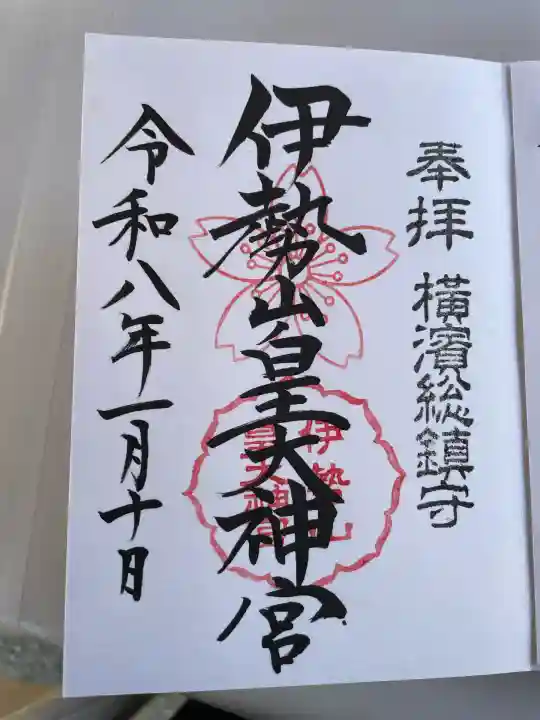 奉拝 橫濱総鎮守
伊勢山皇大神宮
伊勢山
皇大神宮
令和八年一月十日